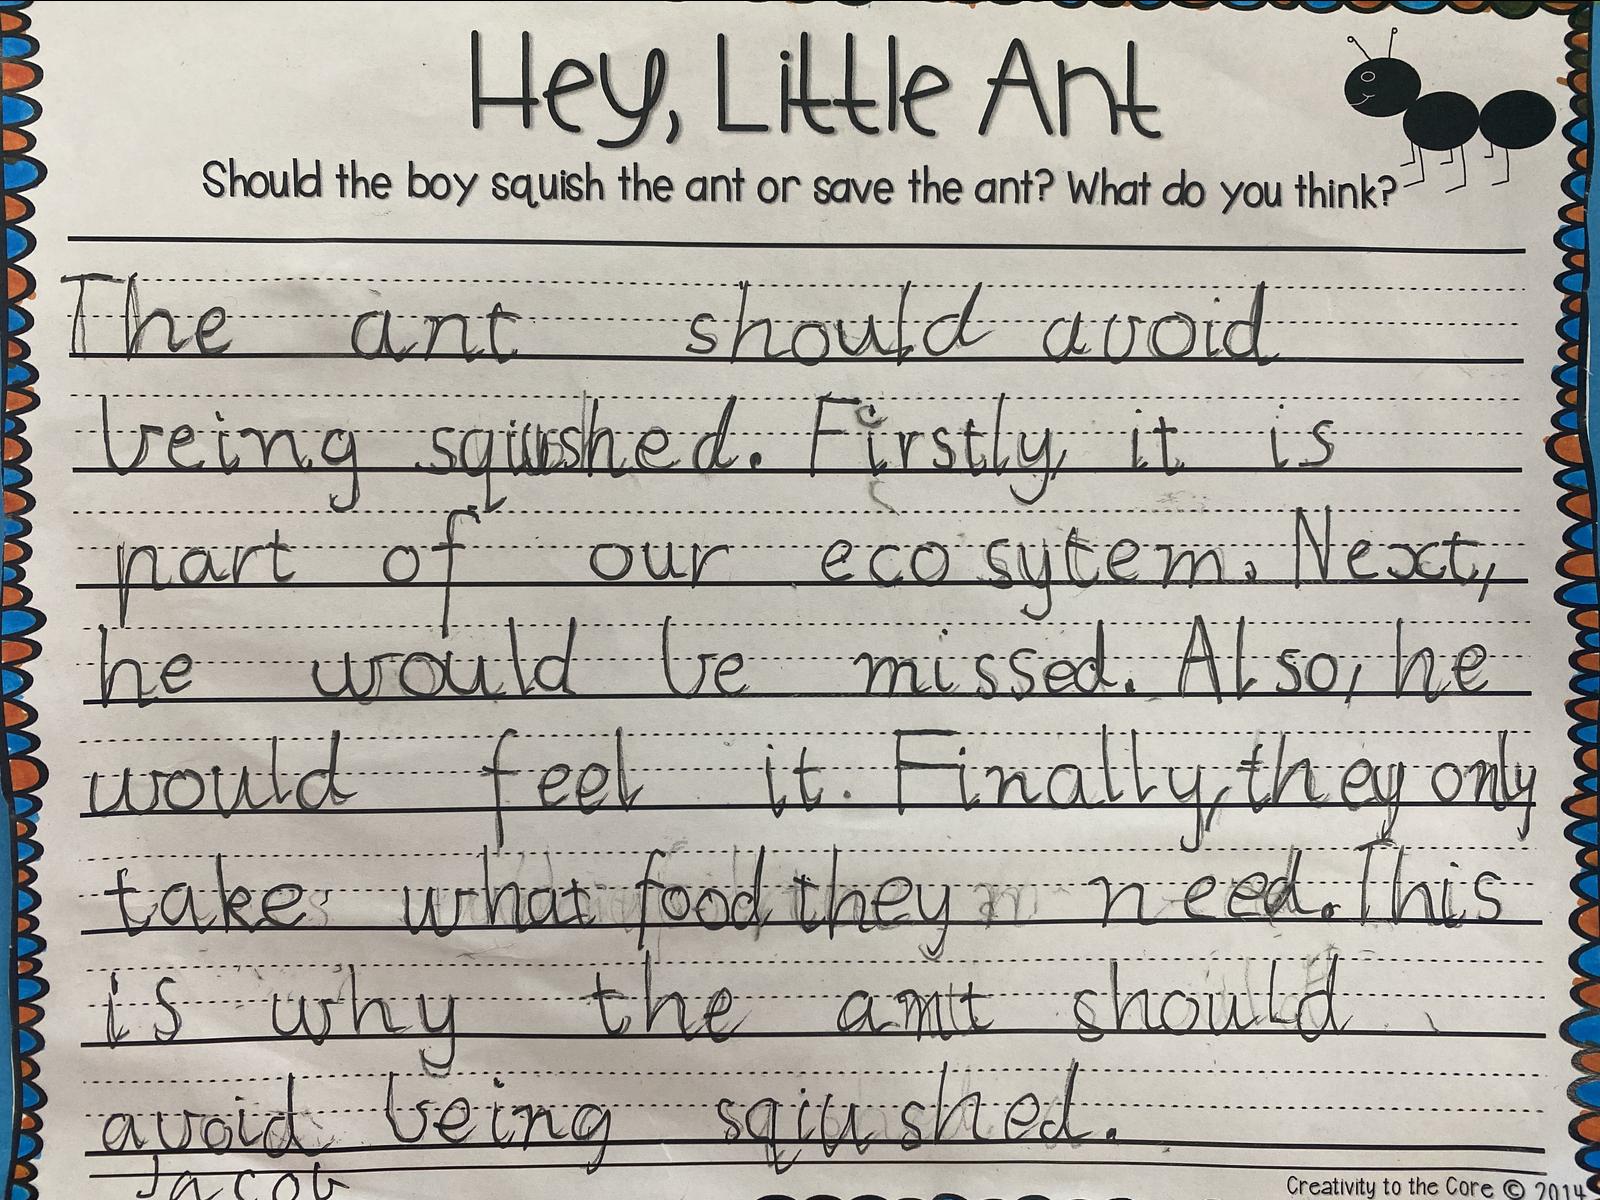 Hey, Little Ant
Should the boy squish the ant or save the ant? What do you think?
The ant should avoid
being sqiushed. Firstly, it is
part of our eco sytem. Next,
he would be missed. Also, he
would feel it. Finally, they only
take what food they need. This
is why the ant should
avoid being sqiushed.
Jacob
Creativity to the Core © 2014